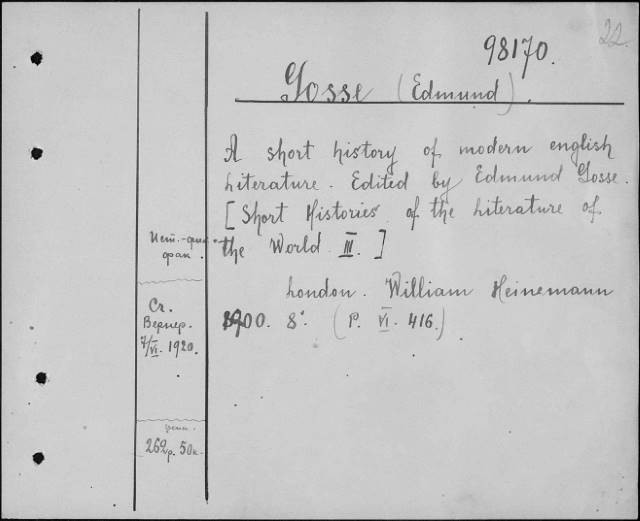 22.
98170.
Gosse (Edmund).
A short history of modern english
Literature. Edited by Edmund Gosse.
[Short Histories of the Literature of
the World III.]
London. William Heinemann
1900. 8°. (P. VI. 416.)
Ист.-фил.
фак.
Ст.
Вернер.
7/VI. 1920.
262р. 50к.